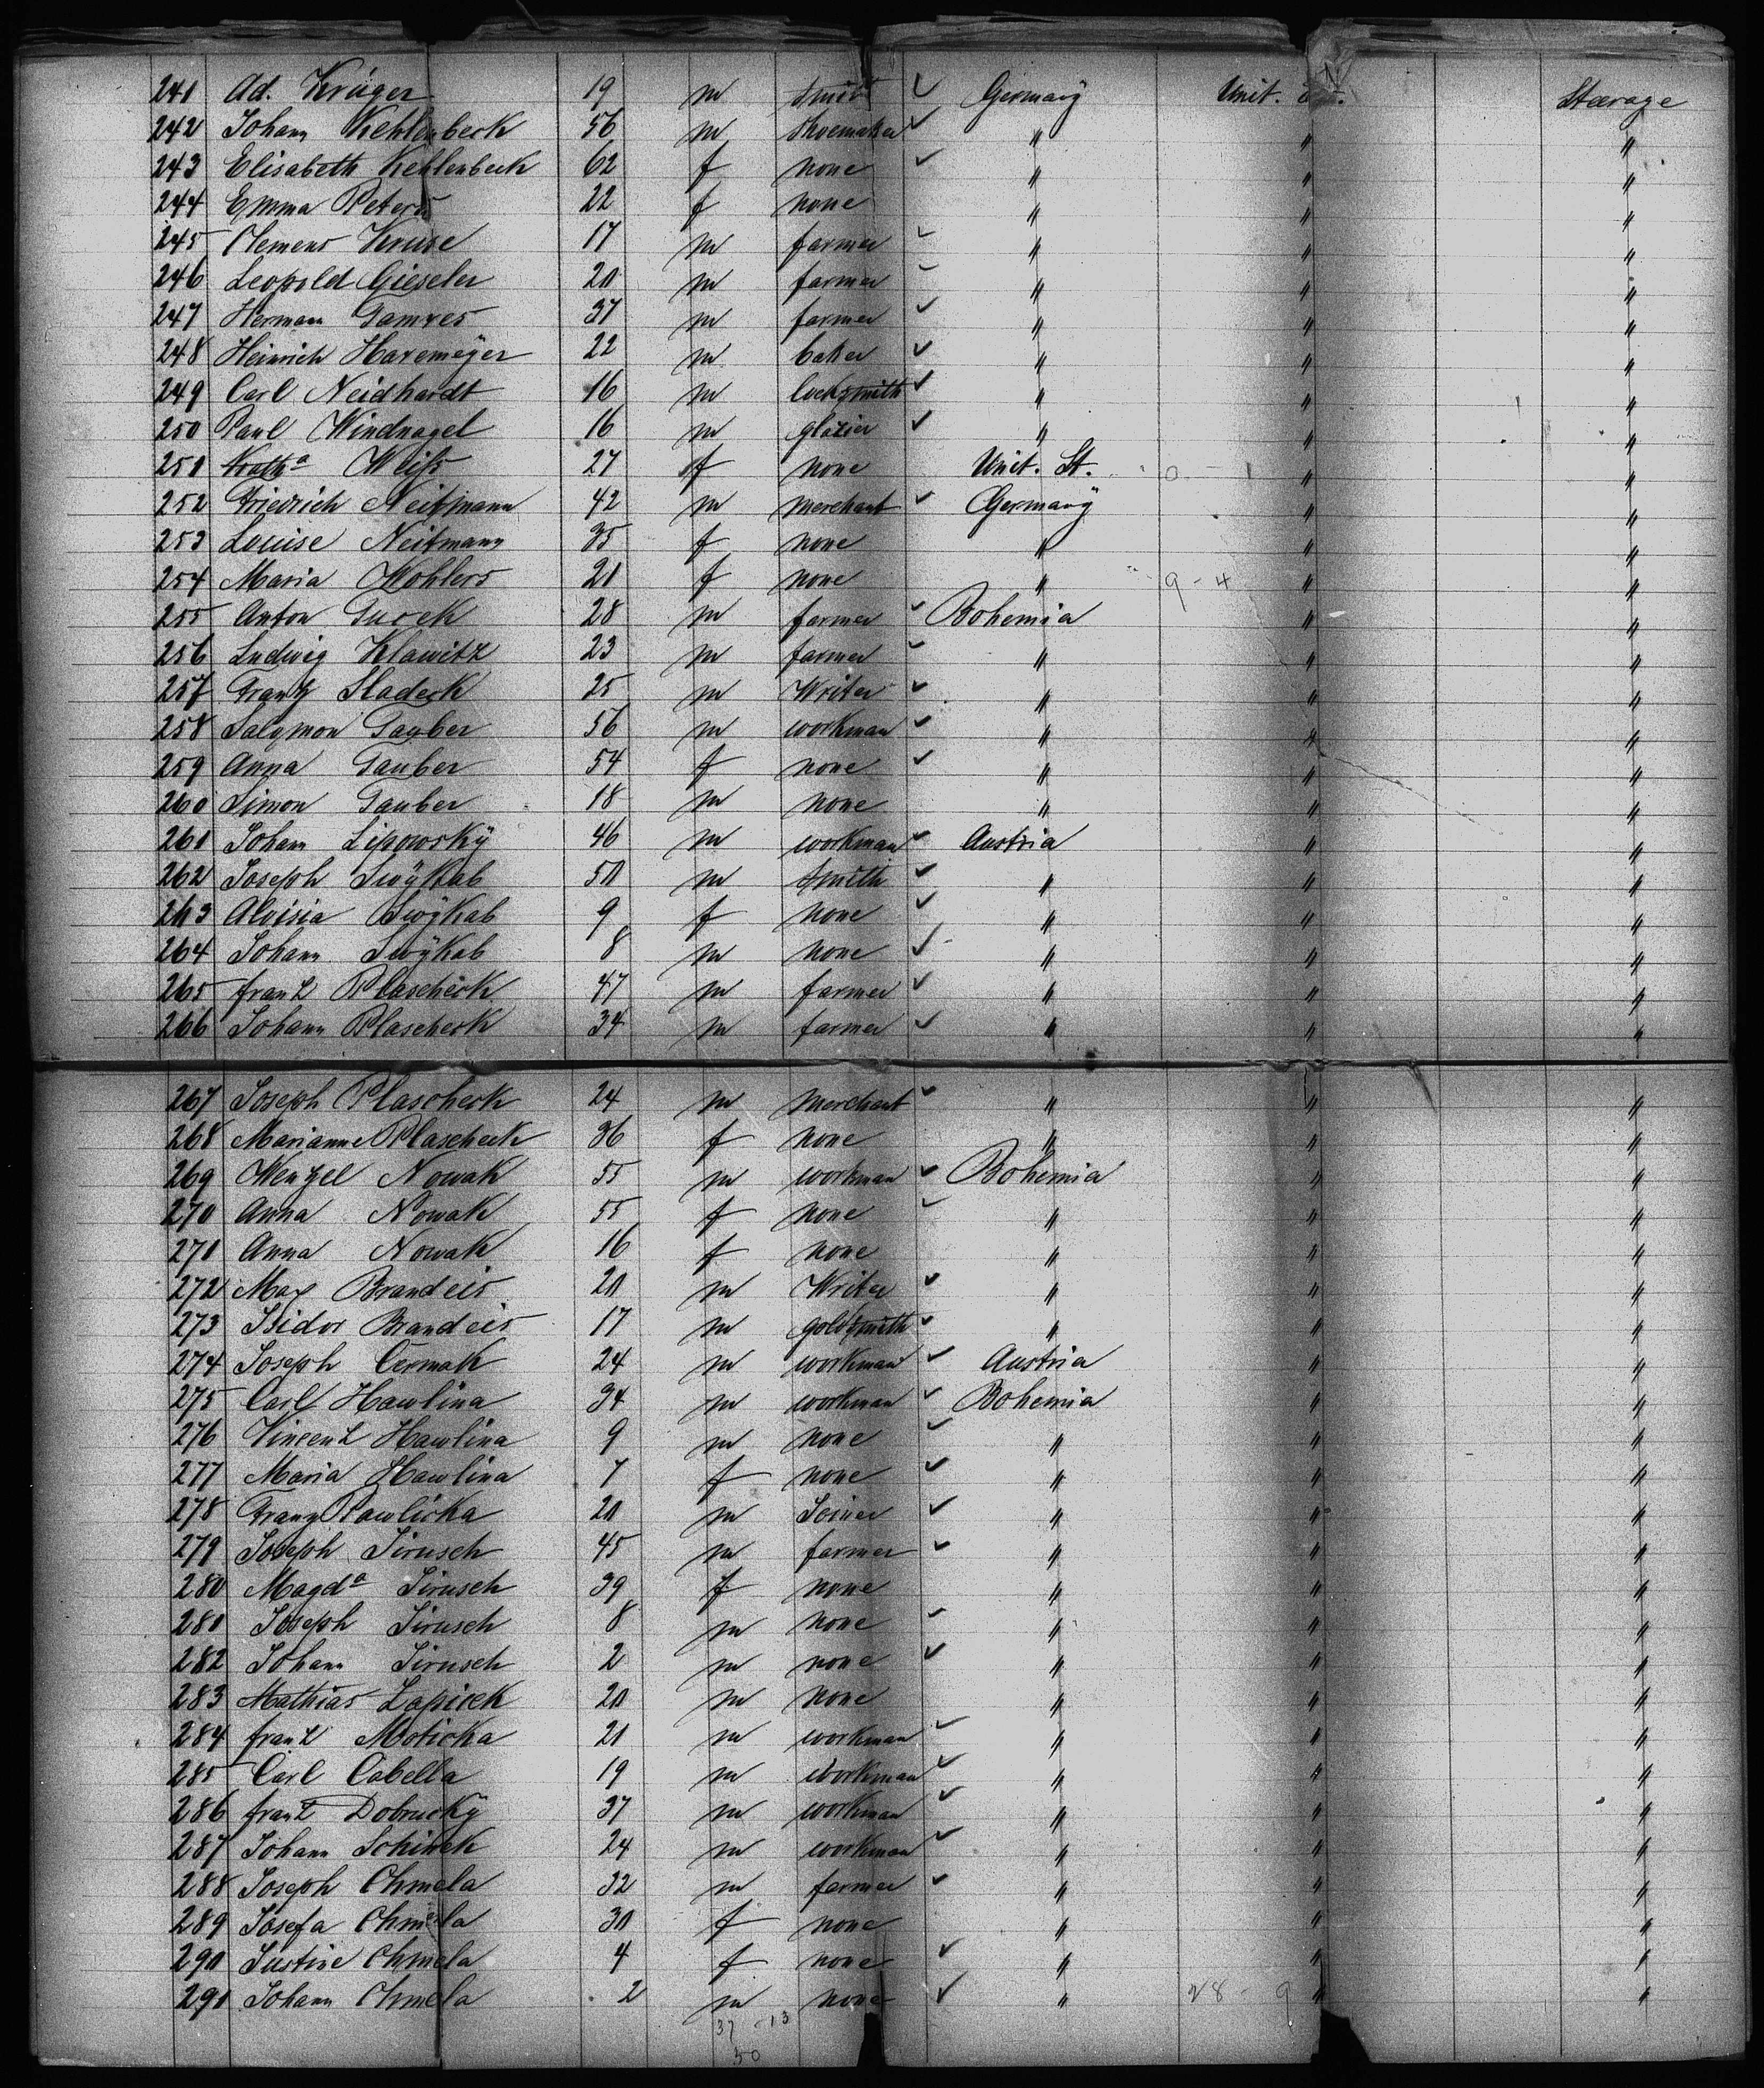 241 Ad. Krüger 19 m smith ✓ Germany Unit. St. Steerage
242 Johann Kehlenbeck 56 m shoemaker ✓ " " "
243 Elisabeth Kehlenbeck 62 f none ✓ " " "
244 Emma Peters 22 f none " " "
245 Clemens Kruse 17 m farmer ✓ " " "
246 Leopold Gieseler 20 m farmer ✓ " " "
247 Herman 37 m farmer ✓ " " "
248 Heinrich Havemeÿer 22 m baker ✓ " " "
249 Carl Neidhardt 16 m locksmith ✓ " " "
250 Paul Windnagel 16 m glazier ✓ " " "
251 Weiſs 27 f none Unit. St. 0 - 1 " "
252 Friedrich Neitmann 42 m merchant ✓ Germany " "
253 Louise Neitmann 35 f none " " "
254 Maria Wohlers 21 f none " 9 - 4 " "
255 Anton Turek 28 m farmer ✓ Bohemia " "
256 Ludwig Klawitz 23 m farmer ✓ " " "
257 Frantz Sladeck 25 m Writer ✓ " " "
258 Salomon Tauber 56 m workman ✓ " " "
259 Anna Tauber 54 f none ✓ " " "
260 Simon Tauber 18 m none " " "
261 Johann Lipowskÿ 46 m workman ✓ Austria " "
262 Joseph Swÿkab 50 m smith ✓ " " "
263 Aloisia Swÿkab 9 f none ✓ " " "
264 Johann Swÿkab 8 m none ✓ " " "
265 franz Plascheck 47 m farmer ✓ " " "
266 Johann Plascheck 34 m farmer ✓ " " "
267 Joseph Plascheck 24 m merchant ✓ " " "
268 Marianne Plascheck 36 f none " " "
269 Wenzel Nowak 55 m workman ✓ Bohemia " "
270 Anna Nowak 55 f none ✓ " " "
271 Anna Nowak 16 f none " " "
272 Max Brandeis 20 m Writer ✓ " " "
273 Isidor Brandeis 17 m goldsmith ✓ " " "
274 Joseph Cermak 24 m workman ✓ Austria " "
275 Carl Hawlina 34 m workman ✓ Bohemia " "
276 Vincenz Hawlina 9 m none ✓ " " "
277 Maria Hawlina 7 f none ✓ " " "
278 Franz Pawlicka 20 m Joiner ✓ " " "
279 Joseph Jirusch 45 m farmer ✓ " " "
280 Magdᵃ Jirusch 39 f none " " "
281 Joseph Jirusch 8 m none ✓ " " "
282 Johann Jirusch 2 m none ✓ " " "
283 Mathias Lapicek 20 m none " " "
284 franz Moticka 21 m workman ✓ " " "
285 Carl Cabella 19 m workman ✓ " " "
286 franz Dobruckÿ 37 m workman ✓ " " "
287 Johann Schinek 24 m workman ✓ " " "
288 Joseph Chmela 32 m farmer ✓ " " "
289 Josefa Chmela 30 f none " " "
290 Justine Chmela 4 f none ✓ " " "
291 Johann Chmela 2 m none ✓ " 28 - 9 " "
37 - 13
50